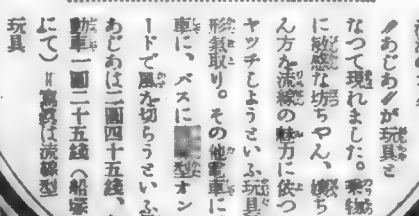 〃あじあ〃が玩具と
なつて現れました。乗物
に敏感な坊ちやん、嬢ち
ん方を流線の魅力に依つ
ヤッチしようといふ玩具
形氣取り。その他電車に
車に、バスに 型オン
ードで風を切らうといふ
あじあは二圓四十五錢、
動車一圓二十五錢（船
にて）〃寫眞は流線型
玩具